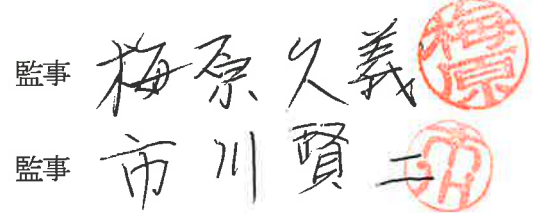 監事 梅原久義 梅原
監事 市川賢二 市川